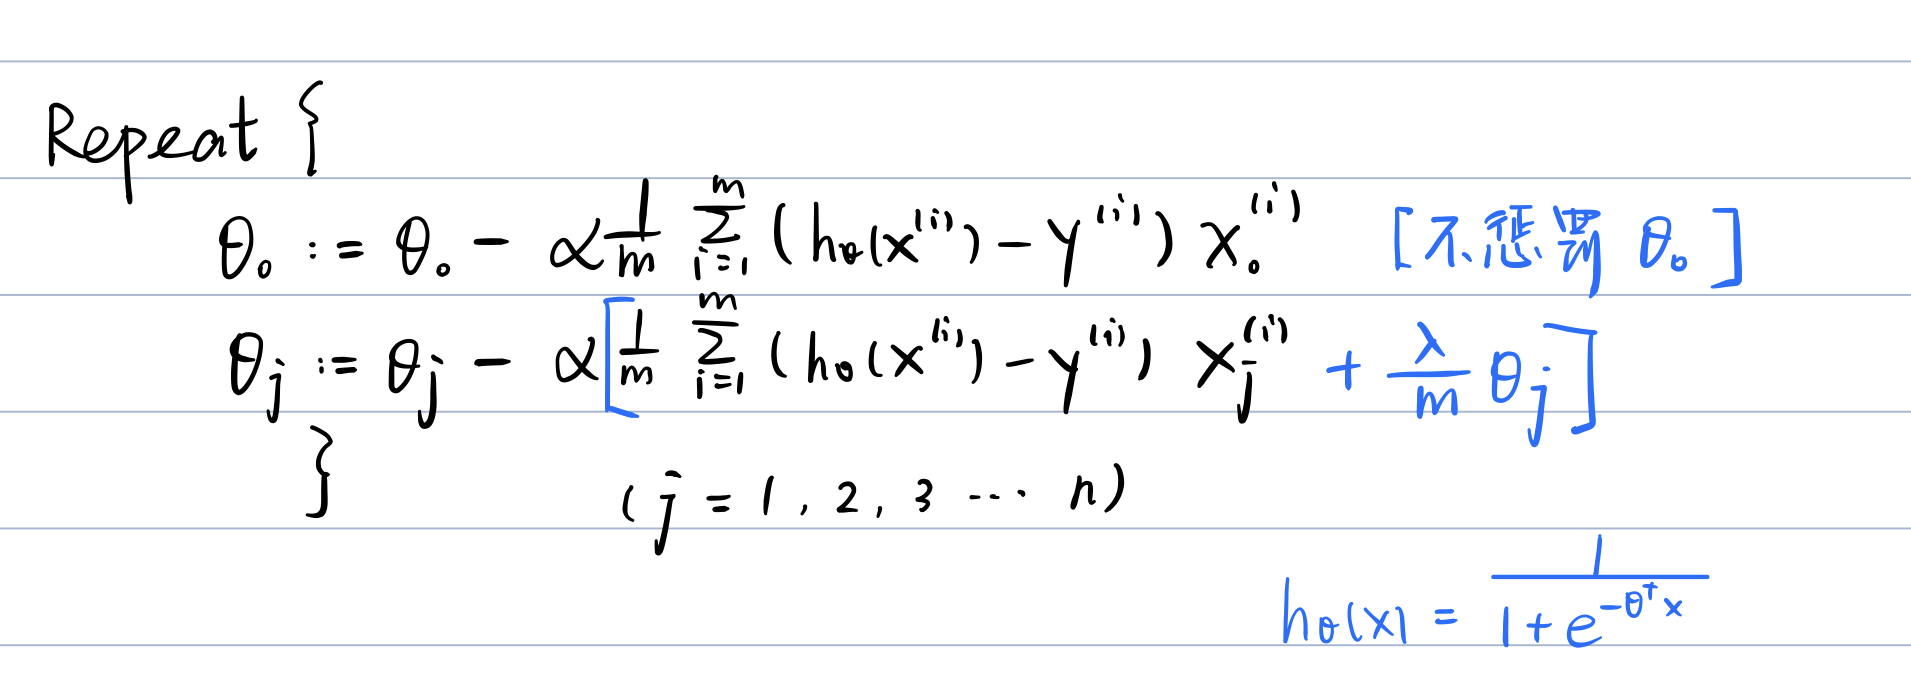 Repeat {
θ₀ := θ₀ - α 1/m ∑_{i=1}^{m} (h_θ(x^{(i)}) - y^{(i)}) x₀^{(i)} [不惩罚 θ₀]
θ_j := θ_j - α [1/m ∑_{i=1}^{m} (h_θ(x^{(i)}) - y^{(i)}) x_j^{(i)} + λ/m θ_j]
}
(j = 1, 2, 3 ... n)
h_θ(x) = 1/(1 + e^{-θ^T x})